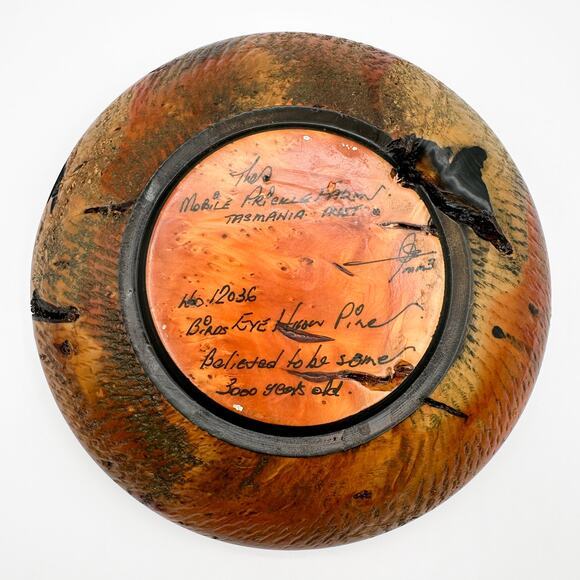 The
Mobile Prickle Farm
Tasmania
No. 12036
Birds Eye Huon Pine
Believed to be some
3000 years old.